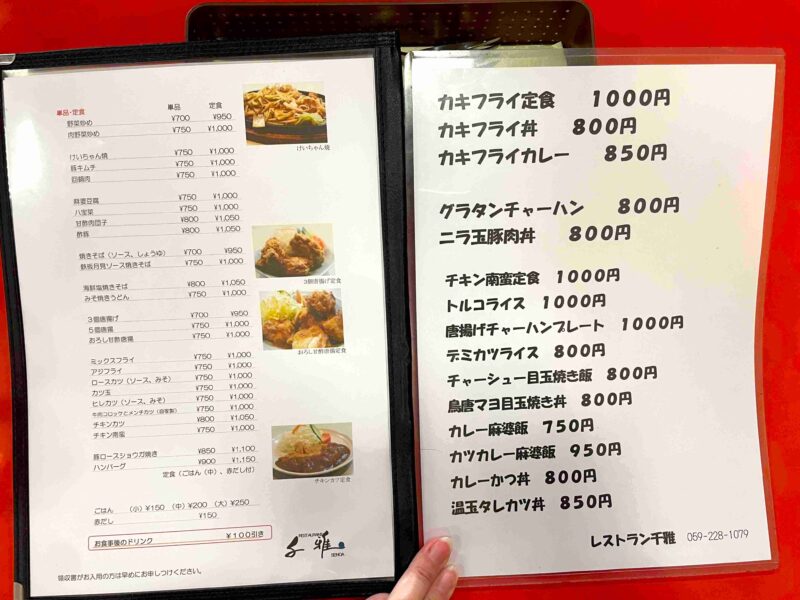 単品・定食 単品 定食
野菜炒め ¥700 ¥950
肉野菜炒め ¥750 ¥1,000
けいちゃん焼 ¥750 ¥1,000
豚キムチ ¥750 ¥1,000
回鍋肉 ¥750 ¥1,000
麻婆豆腐 ¥750 ¥1,000
八宝菜 ¥750 ¥1,000
甘酢肉団子 ¥800 ¥1,050
酢豚 ¥800 ¥1,050
焼きそば（ソース、しょうゆ） ¥700 ¥950
鉄板月見ソース焼きそば ¥750 ¥1,000
海鮮塩焼きそば ¥800 ¥1,050
みそ焼きうどん ¥750 ¥1,000
3個唐揚げ ¥700 ¥950
5個唐揚 ¥750 ¥1,000
おろし甘酢唐揚 ¥750 ¥1,000
ミックスフライ ¥750 ¥1,000
アジフライ ¥750 ¥1,000
ロースカツ（ソース、みそ） ¥750 ¥1,000
カツ玉 ¥750 ¥1,000
ヒレカツ（ソース、みそ） ¥750 ¥1,000
牛肉コロッケとメンチカツ（自家製） ¥750 ¥1,000
チキンカツ ¥800 ¥1,050
チキン南蛮 ¥750 ¥1,000
豚ロースショウガ焼き ¥850 ¥1,100
ハンバーグ ¥900 ¥1,150
定食（ごはん（中）、赤だし付）
ごはん （小）¥150 （中）¥200 （大）¥250
赤だし ¥150
お食事後のドリンク ¥100引き
領収書がお入用の方は早めにお申しつけください。
けいちゃん焼
3個唐揚げ定食
おろし甘酢唐揚定食
チキンカツ定食
RESTAURANT
千雅
SENGA
カキフライ定食 1000円
カキフライ丼 800円
カキフライカレー 850円
グラタンチャーハン 800円
ニラ玉豚肉丼 800円
チキン南蛮定食 1000円
トルコライス 1000円
唐揚げチャーハンプレート 1000円
デミカツライス 800円
チャーシュー目玉焼き飯 800円
鳥唐マヨ目玉焼き丼 800円
カレー麻婆飯 750円
カツカレー麻婆飯 950円
カレーかつ丼 800円
温玉タレカツ丼 850円
レストラン千雅 059-228-1079